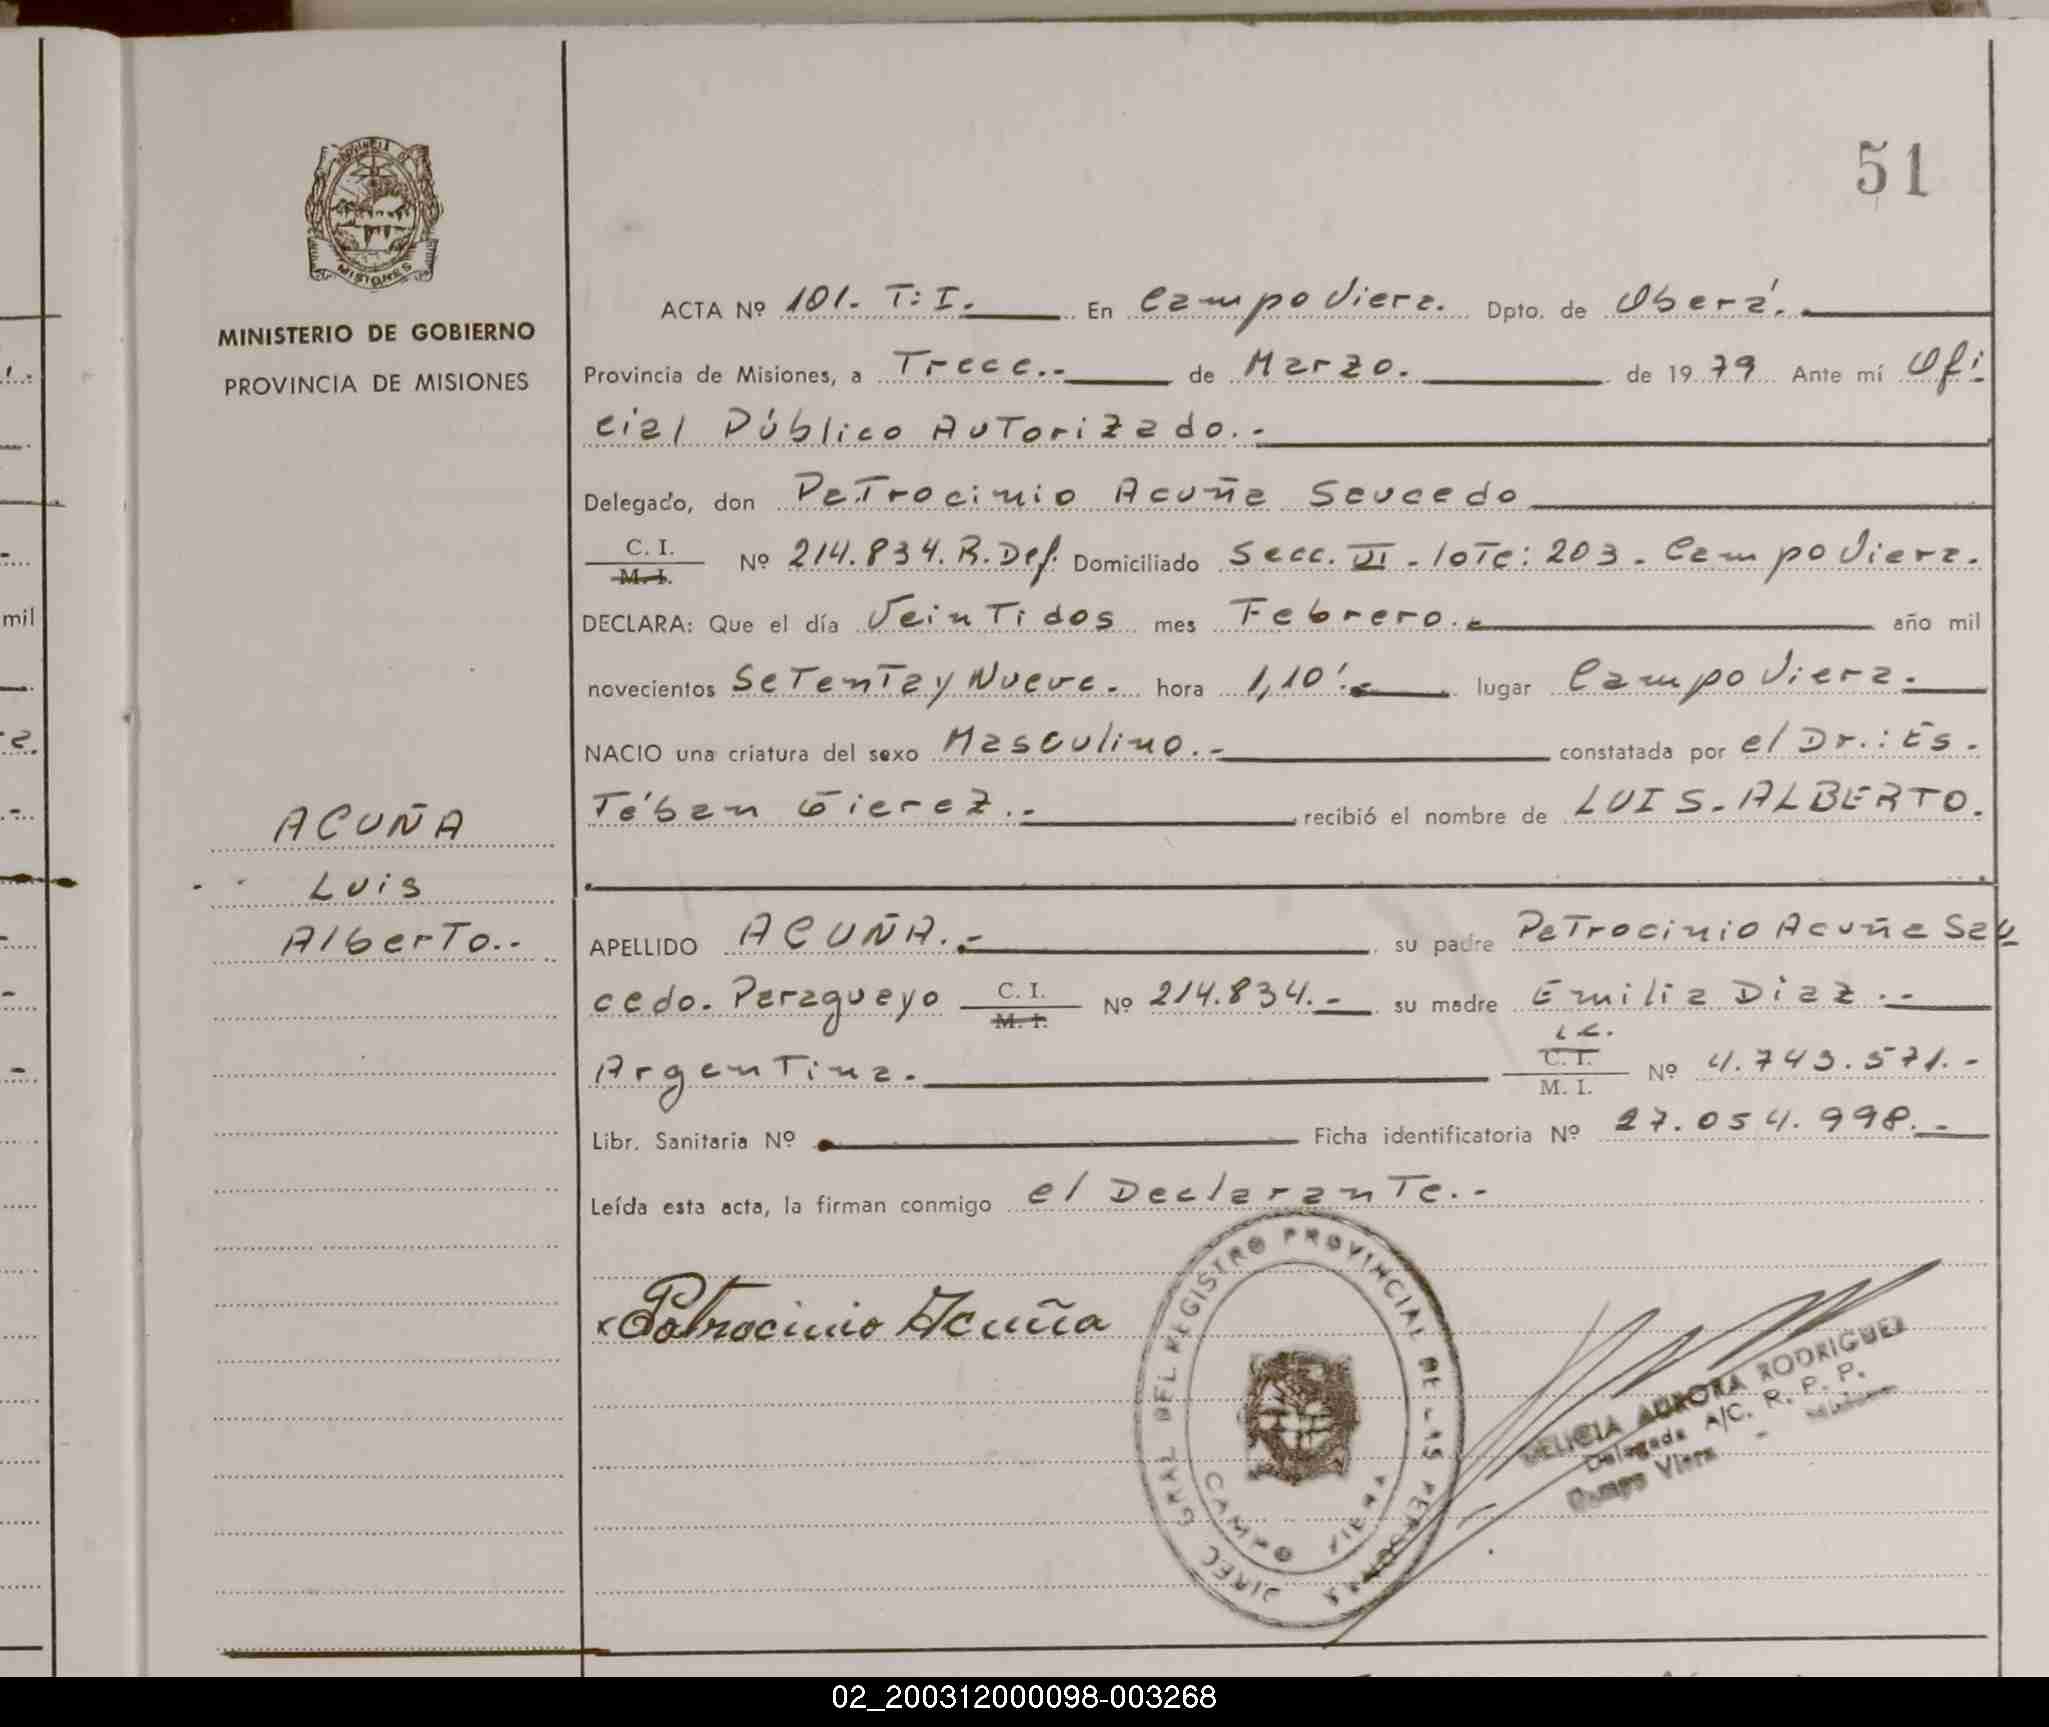 51
MINISTERIO DE GOBIERNO
PROVINCIA DE MISIONES
ACUÑA
Luis
Alberto.-
ACTA Nº 101. T: I. En Campo Viera. Dpto. de Oberá.
Provincia de Misiones, a Trece.- de Marzo. de 1979 Ante mí Ofi
cial Público Autorizado.-
Delegado, don Patrocinio Acuña Saucedo
C. I.
M. I. Nº 214.834.R.Def. Domiciliado Secc. VI - lote: 203 - Campo Viera.
DECLARA: Que el día Veintidos mes Febrero.- año mil
novecientos Setenta y Nueve. hora 1,10'.- lugar Campo Viera.
NACIO una criatura del sexo Masculino.- constatada por el Dr.: Es-
téban Gierez.- recibió el nombre de LUIS-ALBERTO.
APELLIDO ACUÑA.- su padre Patrocinio Acuña Sau
cedo. Paraguayo C. I.
M. I. Nº 214.834.- su madre Emilia Diaz.-
Argentina.- L.C.
C. I.
M. I. Nº 4.743.571.-
Libr. Sanitaria Nº Ficha identificatoria Nº 27.054.998.-
Leída esta acta, la firman conmigo el Declarante.-
x Patrocinio Acuña
DIREC. GRAL DEL REGISTRO PROVINCIAL DE LAS PERSONAS
CAMPO VIERA
DELICIA AURORA RODRIGUEZ
Delegada A/C. R. P. P.
Campo Viera - Misiones
PROVINCIA DE
MISIONES
mil
02_200312000098-003268